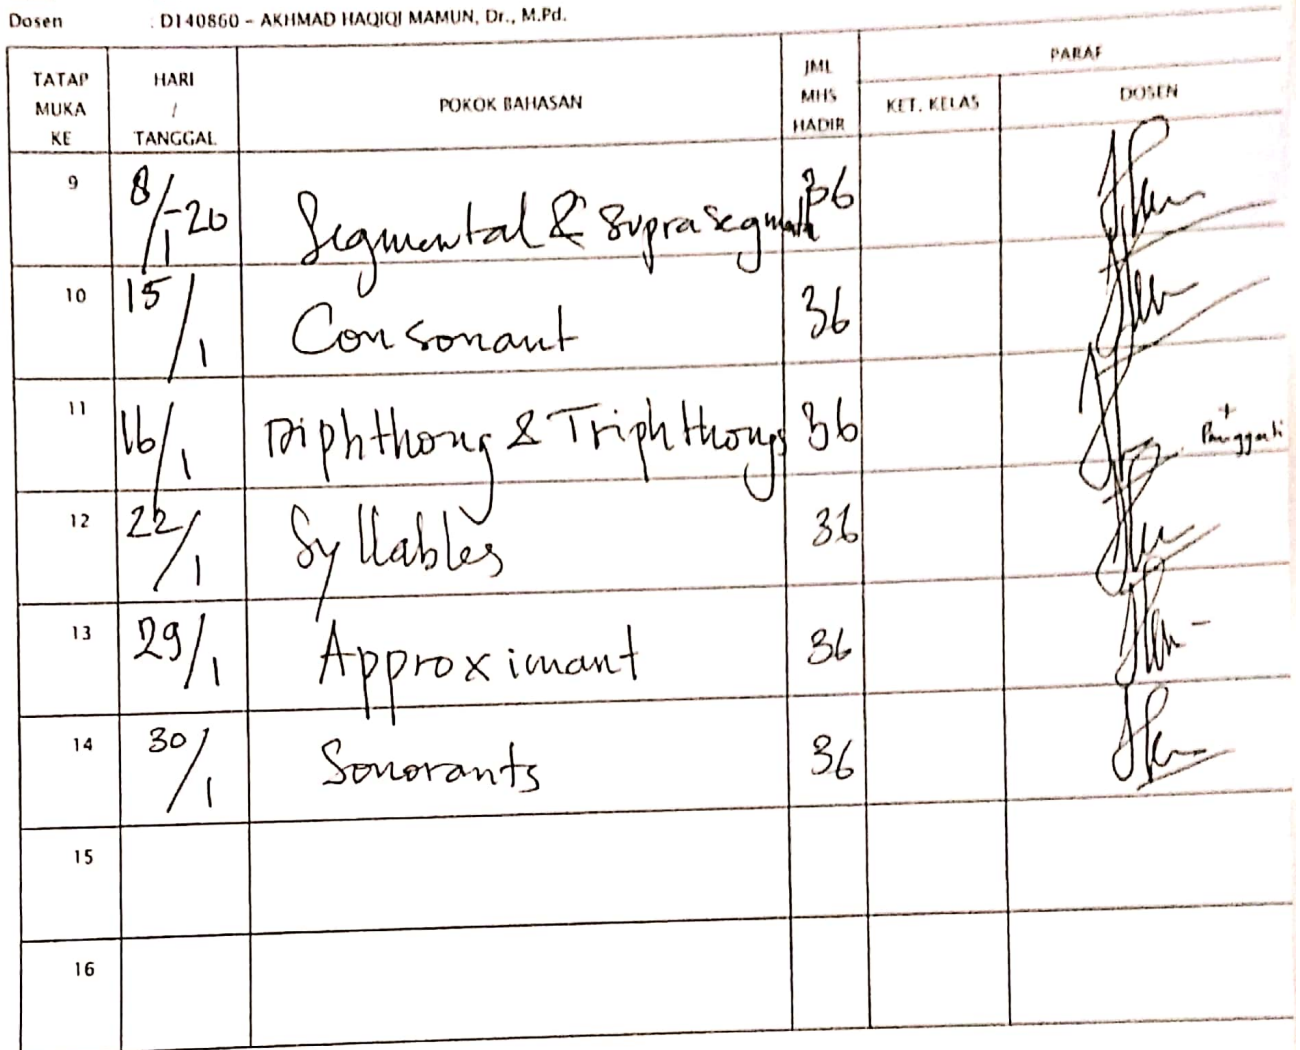 Dosen : D140860 - AKHMAD HAQIQI MAMUN, Dr., M.Pd.
TATAP MUKA KE HARI / TANGGAL POKOK BAHASAN JML MHS HADIR PARAF
KET. KELAS DOSEN
9 8/1-20 Segmental & Suprasegmental 36
10 15/1 Consonant 36
11 16/1 Diphthong & Triphthongs 36 + Pengganti
12 22/1 Syllables 36
13 29/1 Approximant 36
14 30/1 Sonorants 36
15
16